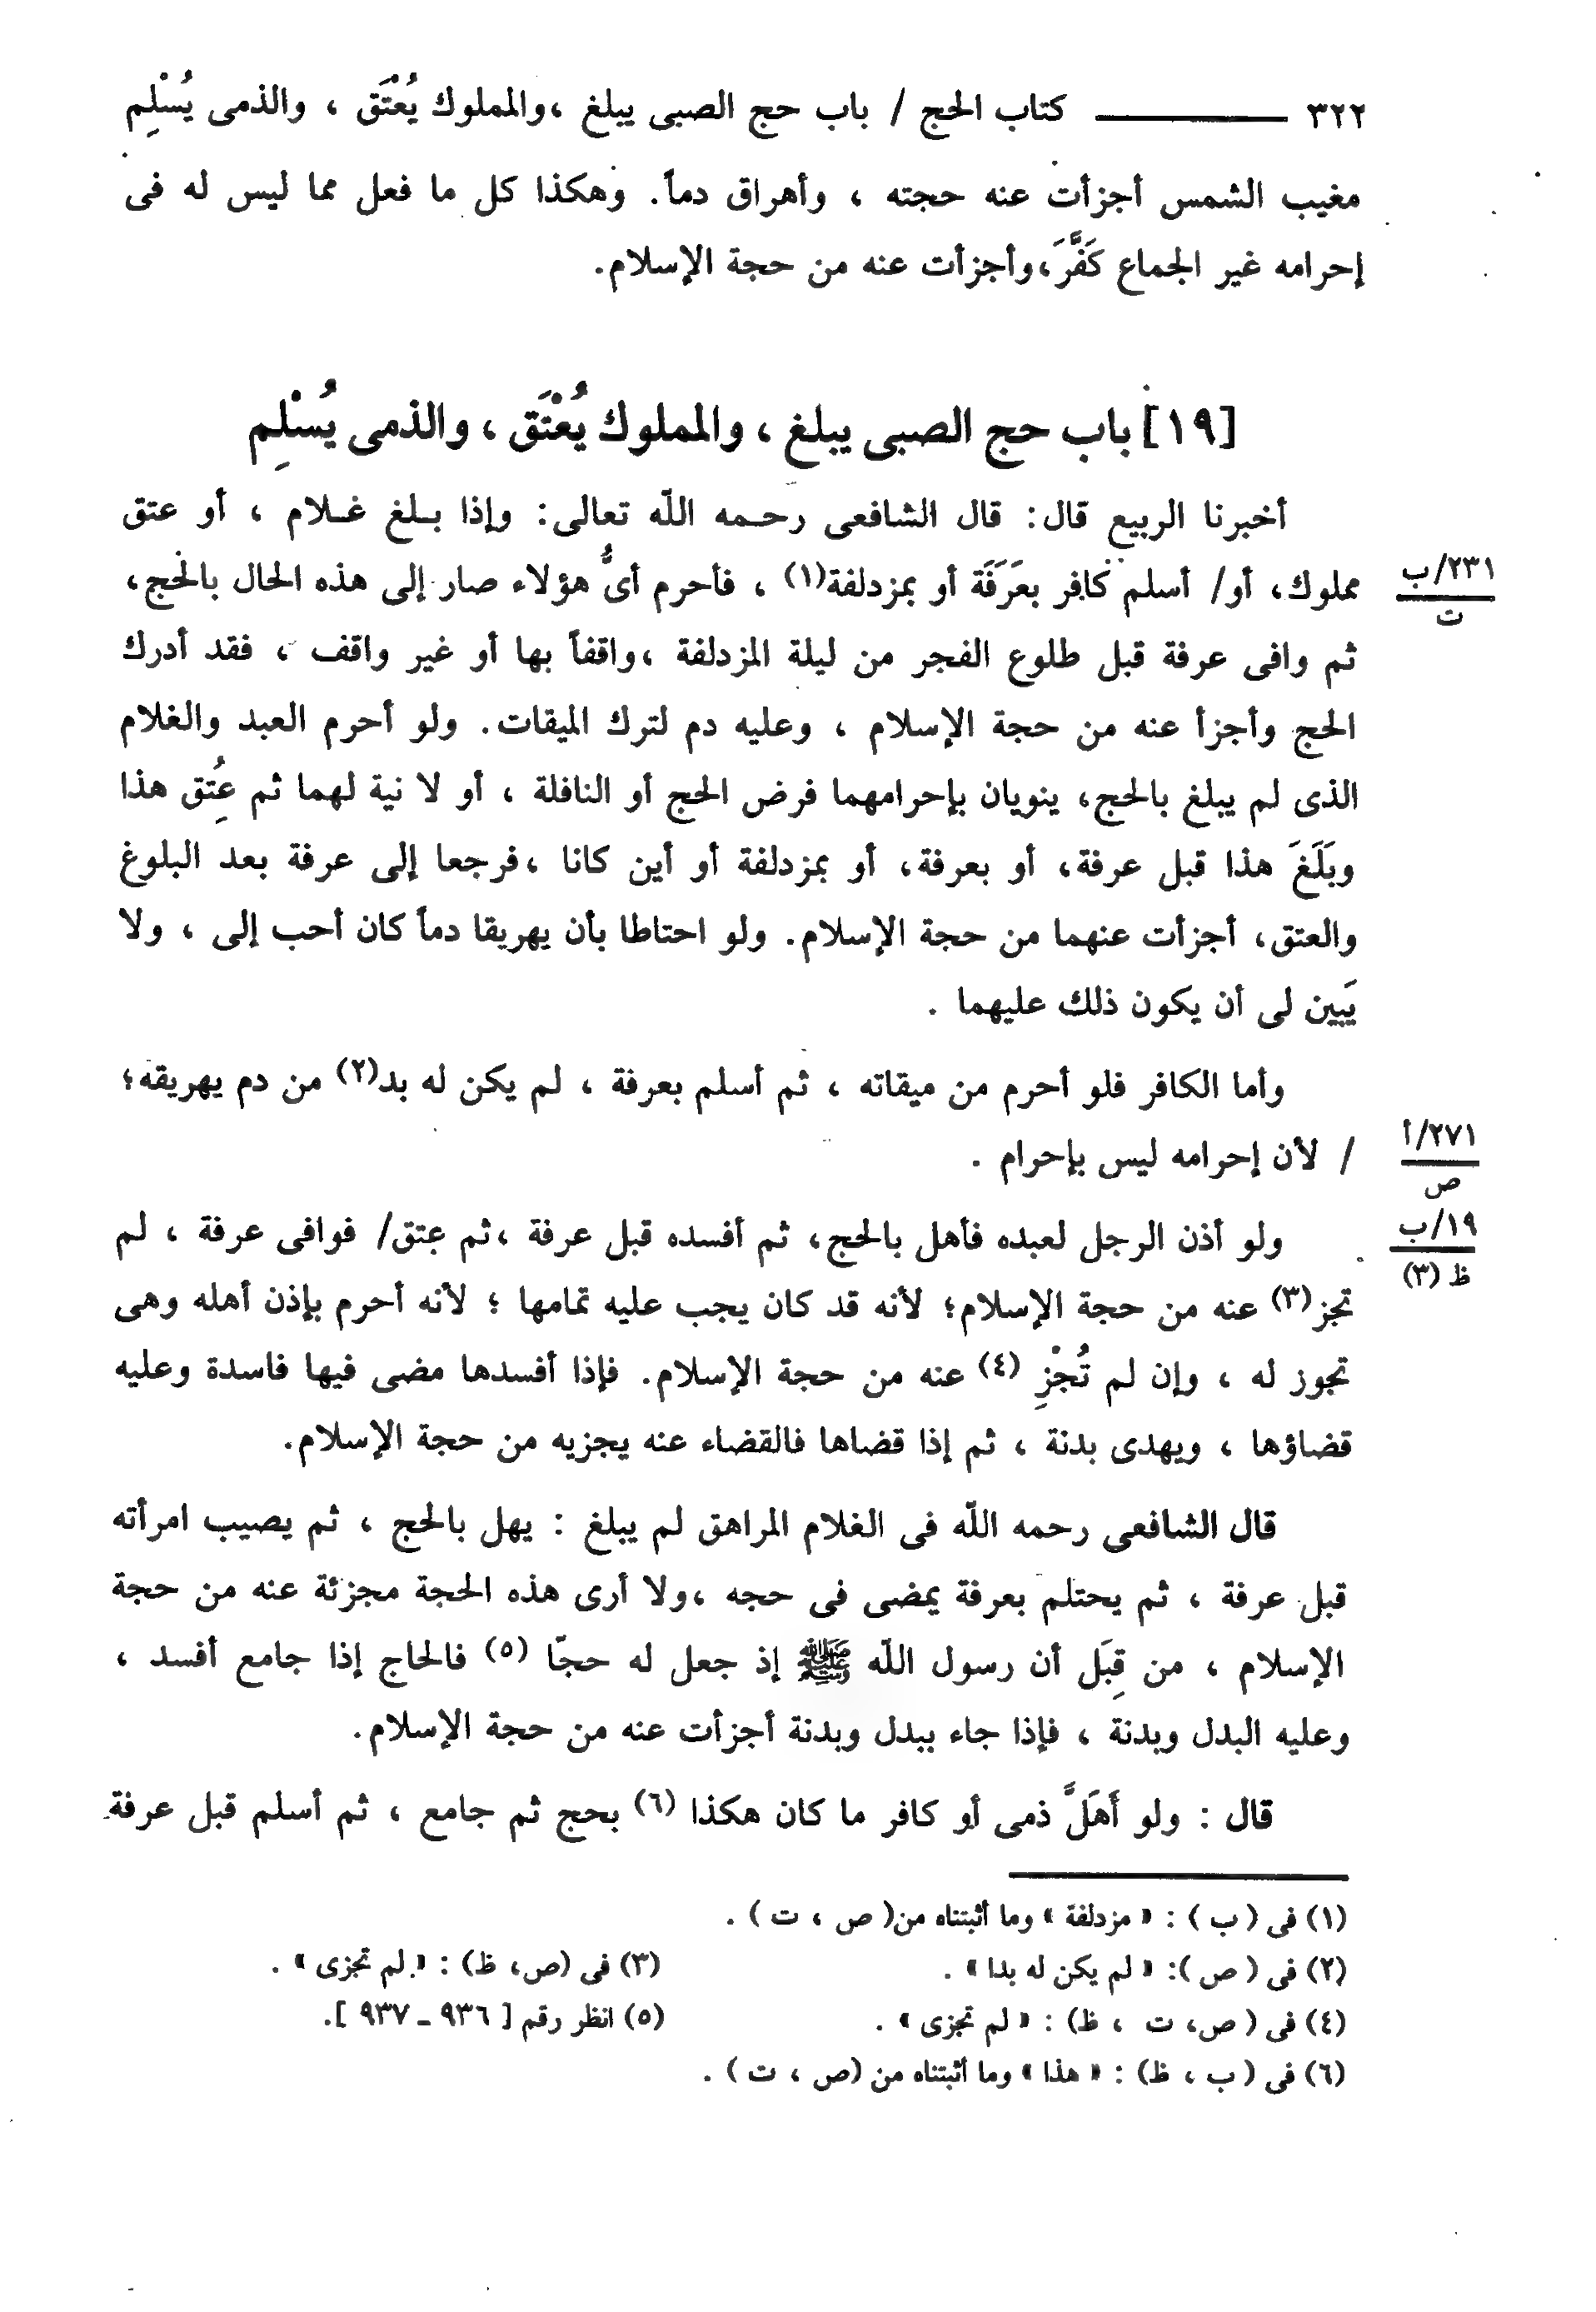 ٣٢٢ كتاب الحج / باب حج الصبى يبلغ ،والمملوك يُعْتَق ، والذمى يُسْلِم
مغيب الشمس أجزأت عنه حجته ، وأهراق دماً. وهكذا كل ما فعل مما ليس له فى
إحرامه غير الجماع كَفَّرَ،وأجزأت عنه من حجة الإسلام.
[١٩] باب حج الصبى يبلغ ، والمملوك يُعْتَق ، والذمى يُسْلِم
أخبرنا الربيع قال: قال الشافعى رحمه اللّه تعالى: وإذا بلغ غلام ، أو عتق
مملوك، أو/ أسلم كافر بعَرَفَة أو بمزدلفة(١) ، فأحرم أىُّ هؤلاء صار إلى هذه الحال بالحج،
٢٣١/ب
ت
ثم وافى عرفة قبل طلوع الفجر من ليلة المزدلفة ،واقفاً بها أو غير واقف ، فقد أدرك
الحج وأجزأ عنه من حجة الإسلام ، وعليه دم لترك الميقات. ولو أحرم العبد والغلام
الذى لم يبلغ بالحج، ينويان بإحرامهما فرض الحج أو النافلة ، أو لا نية لهما ثم عُتِق هذا
وبَلَغَ هذا قبل عرفة، أو بعرفة، أو بمزدلفة أو أين كانا ،فرجعا إلى عرفة بعد البلوغ
والعتق، أجزأت عنهما من حجة الإسلام. ولو احتاطا بأن يهريقا دماً كان أحب إلى ، ولا
يَبين لى أن يكون ذلك عليهما .
وأما الكافر فلو أحرم من ميقاته ، ثم أسلم بعرفة ، لم يكن له بد(٢) من دم يهريقه؛
/ لأن إحرامه ليس بإحرام .
٢٧١/أ
ص
ولو أذن الرجل لعبده فأهل بالحج، ثم أفسده قبل عرفة ،ثم عتق/ فوافى عرفة ، لم
١٩/ب
ظ (٣)
تجز(٣) عنه من حجة الإسلام؛ لأنه قد كان يجب عليه تمامها ؛ لأنه أحرم بإذن أهله وهى
تجوز له ، وإن لم تُجْزِ (٤) عنه من حجة الإسلام. فإذا أفسدها مضى فيها فاسدة وعليه
قضاؤها ، ويهدى بدنة ، ثم إذا قضاها فالقضاء عنه يجزيه من حجة الإسلام.
قال الشافعى رحمه اللّه فى الغلام المراهق لم يبلغ : يهل بالحج ، ثم يصيب امرأته
قبل عرفة ، ثم يحتلم بعرفة يمضى فى حجه ،ولا أرى هذه الحجة مجزئة عنه من حجة
الإسلام ، من قِبَل أن رسول اللّه ﷺ إذ جعل له حجّا (٥) فالحاج إذا جامع أفسد ،
وعليه البدل وبدنة ، فإذا جاء ببدل وبدنة أجزأت عنه من حجة الإسلام.
قال : ولو أَهَلَّ ذمى أو كافر ما كان هكذا (٦) بحج ثم جامع ، ثم أسلم قبل عرفة
(١) فى ( ب ) : « مزدلفة » وما أثبتناه من( ص ، ت ) .
(٢) فى ( ص ): « لم يكن له بدا » . (٣) فى (ص، ظ) : « لم تجزى » .
(٤) فى ( ص، ت ، ظ) : « لم تجزى » . (٥) انظر رقم [ ٩٣٦ ـ ٩٣٧ ].
(٦) فى ( ب ، ظ) : « هذا » وما أثبتناه من (ص ، ت ) .